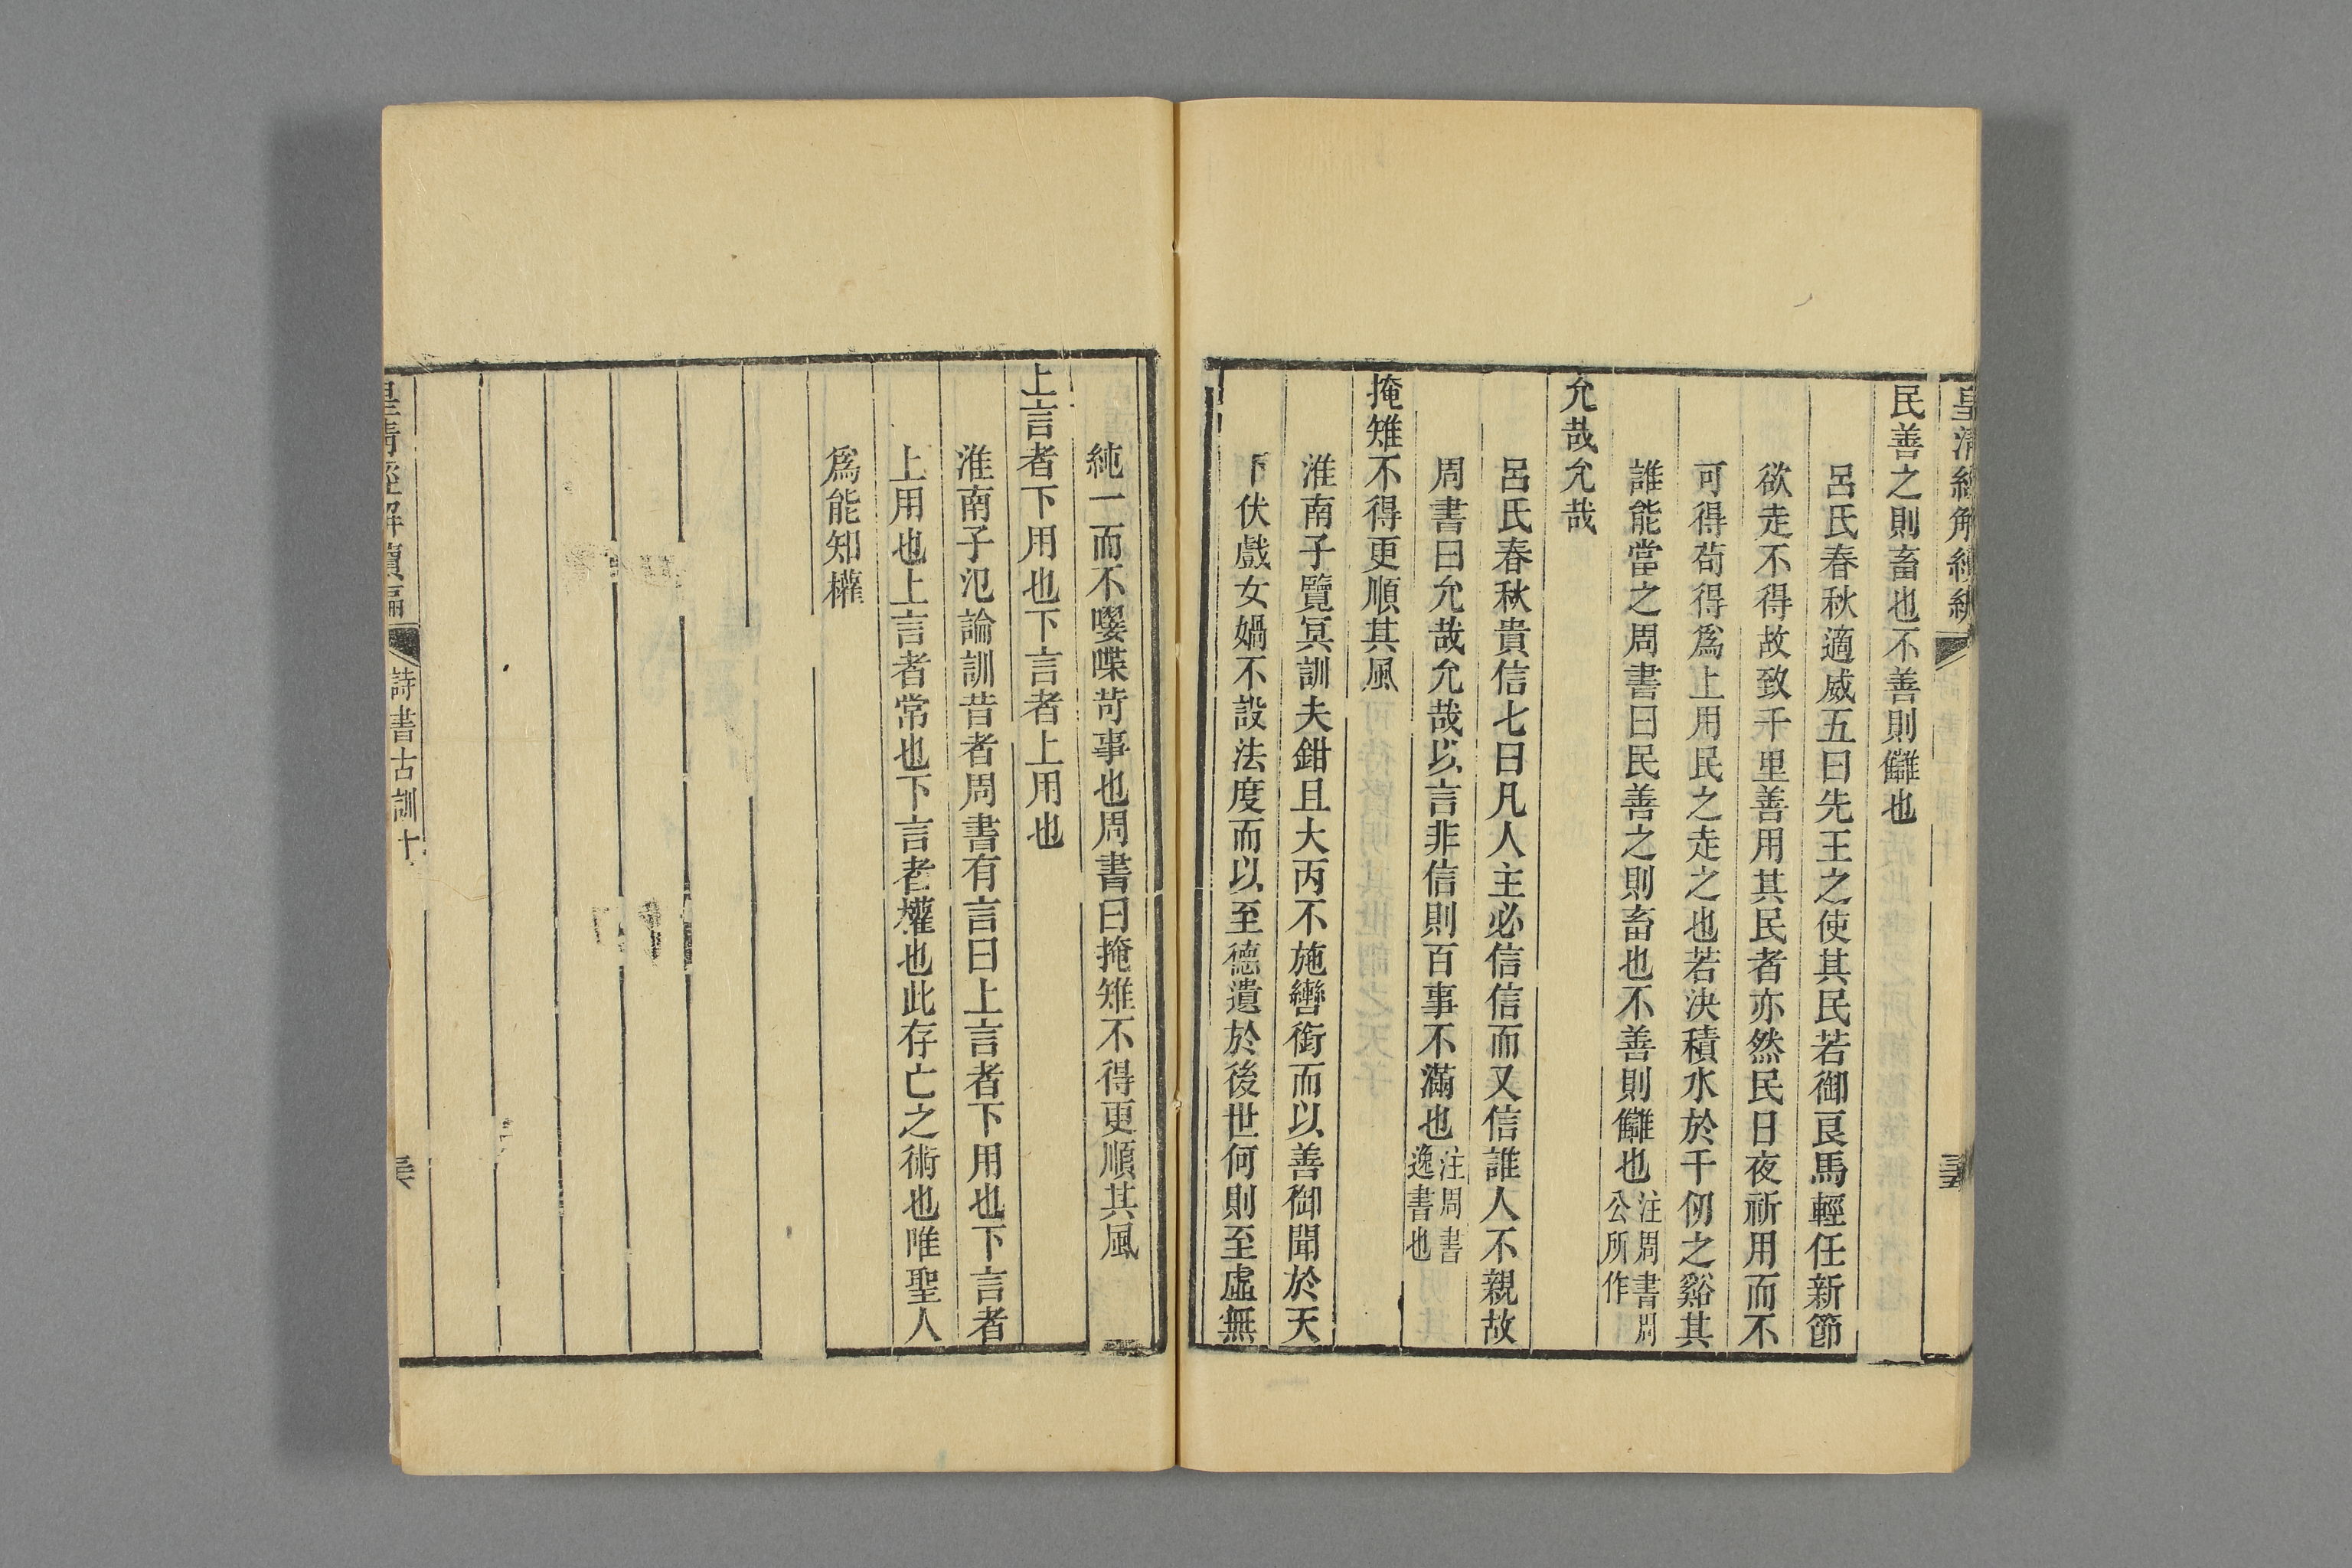 皇清經解續編
民善之則畜也不善則讎也
呂氏春秋適威五曰先王之使其民若御良馬輕任新節
欲走不得故致千里善用其民者亦然民日夜祈用而不
可得苟得爲上用民之走之也若決積水於千仞之谿其
誰能當之周書曰民善之則畜也不善則讎也注周書周
公所作
允哉允哉
呂氏春秋貴信七曰凡人主必信信而又信誰人不親故
周書曰允哉允哉以言非信則百事不滿也注周書
逸書也
掩雉不得更順其風
淮南子覽冥訓夫鉗且大丙不施轡銜而以善御聞於天
下伏戲女媧不設法度而以至德遺於後世何則至虛無
純一而不嚶喋苛事也周書曰掩雉不得更順其風
上言者下用也下言者上用也
淮南子氾論訓昔者周書有言曰上言者下用也下言者
上用也上言者常也下言者權也此存亡之術也唯聖人
爲能知權
皇清經解續編
詩書古訓十